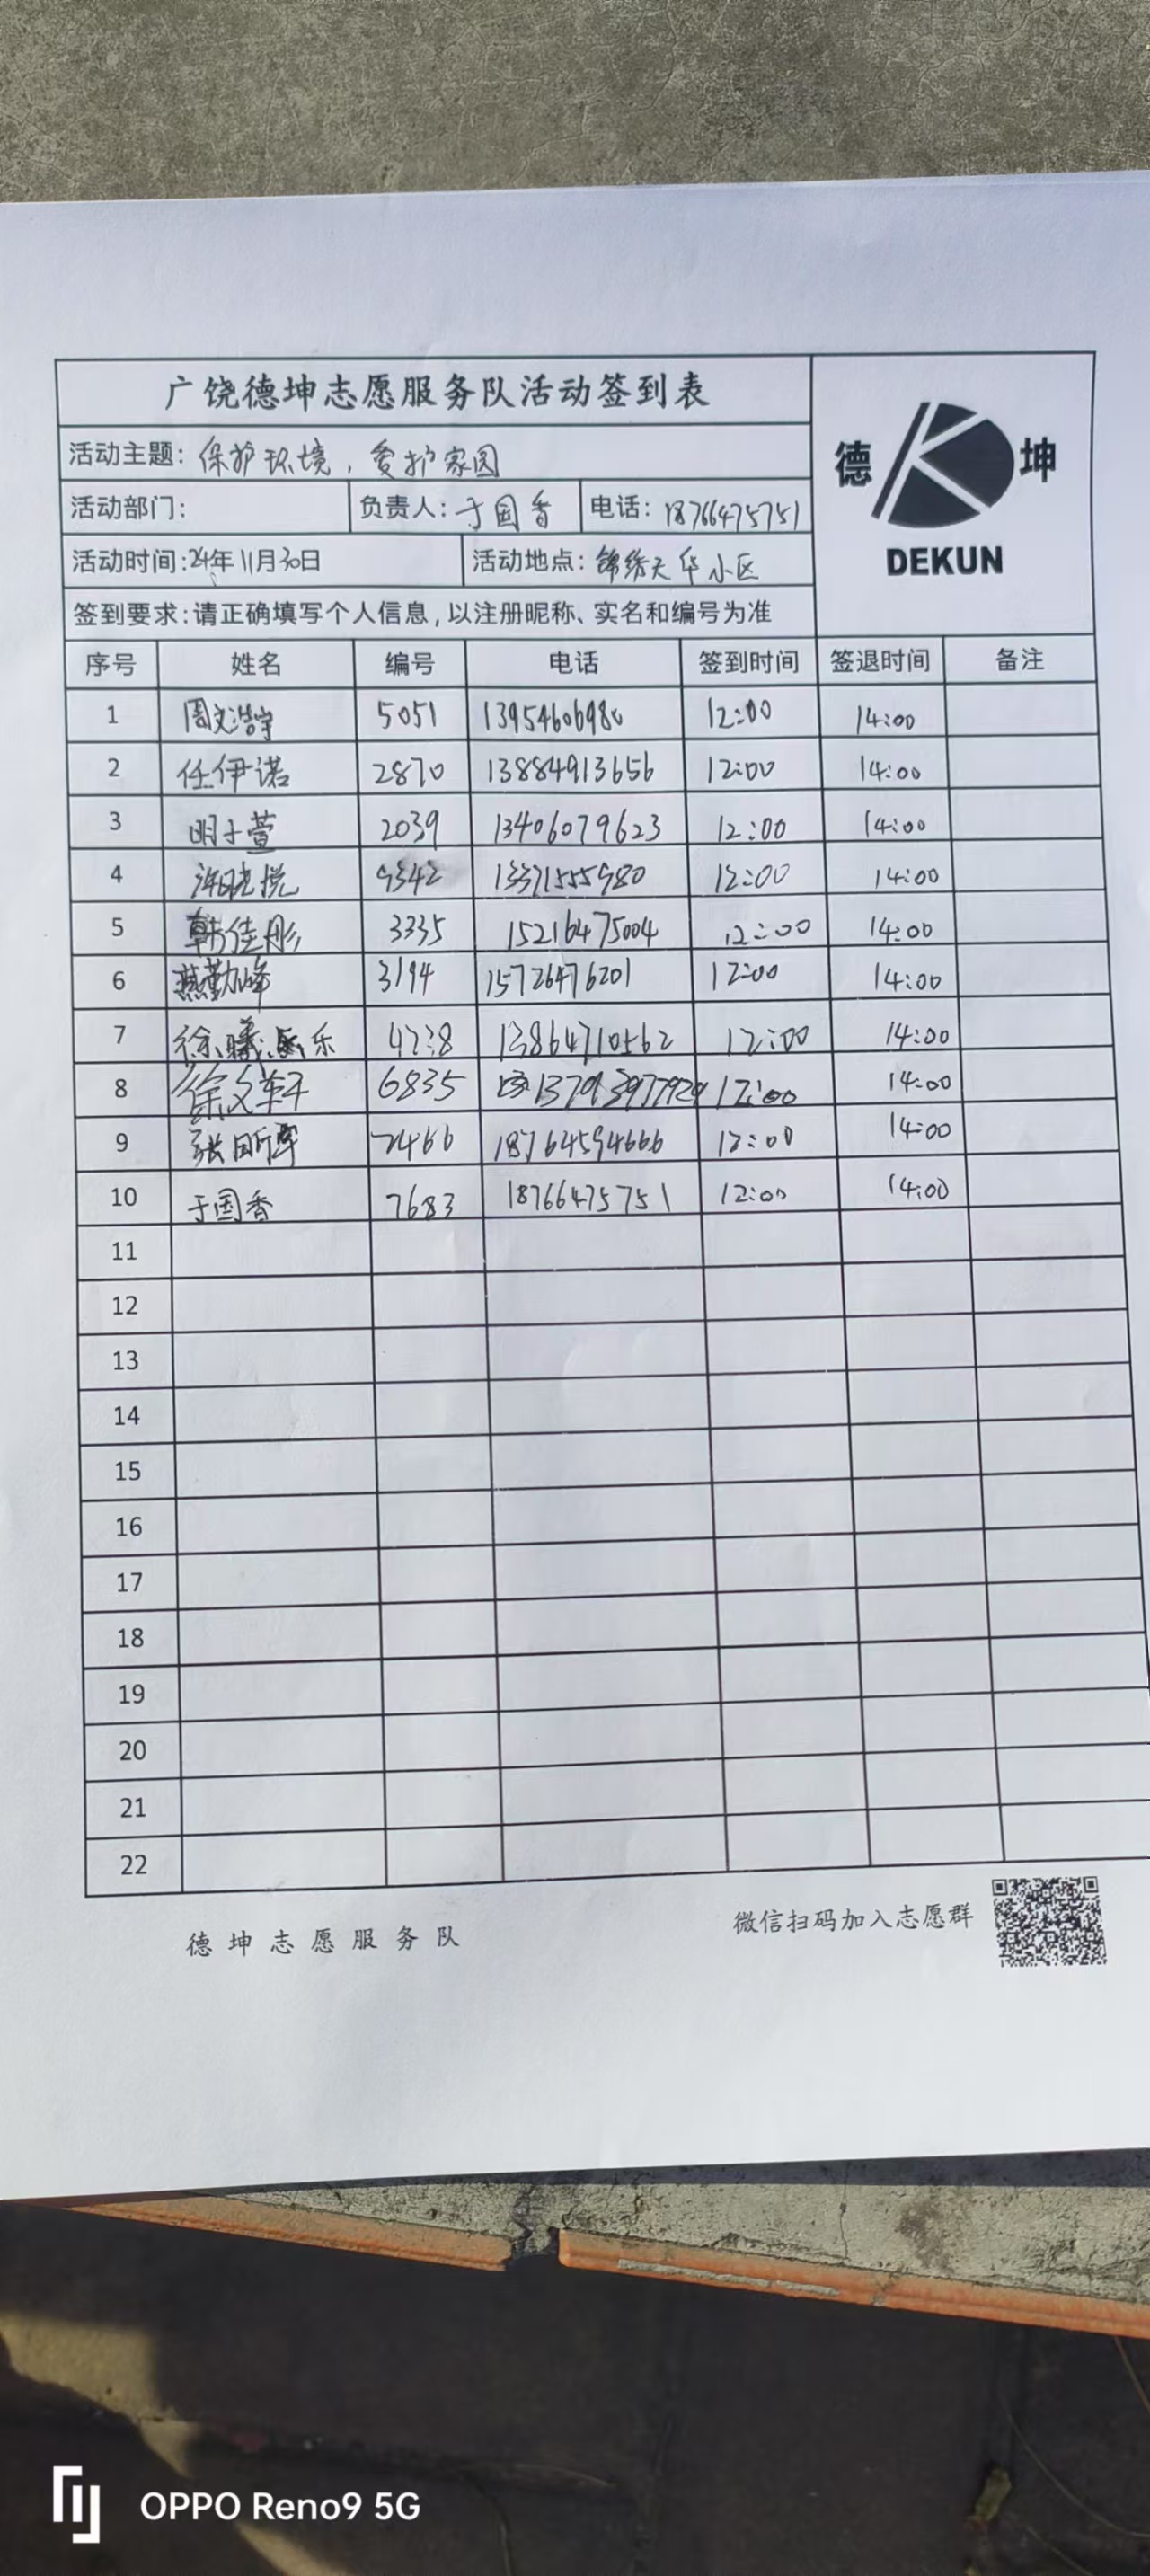 广饶德坤志愿服务队活动签到表
活动主题: 保护环境,爱护家园
德 坤
DEKUN
活动部门: 负责人: 于国香 电话: 18766475751
活动时间:24年11月30日 活动地点: 锦绣天华小区
签到要求:请正确填写个人信息,以注册昵称、实名和编号为准
序号 姓名 编号 电话 签到时间 签退时间 备注
1 周文浩宇 5051 13954606980 12:00 14:00
2 任伊诺 2870 13884913656 12:00 14:00
3 明子萱 2039 13406079623 12:00 14:00
4 9342 13371555980 12:00 14:00
5 韩佳彤 3335 15216475004 12:00 14:00
6 燕勤峰 3194 15726476201 12:00 14:00
7 徐曦 乐 13864710562 12:00 14:00
8 徐文轩 6835 12:00 14:00
9 7466 18764594666 12:00 14:00
10 于国香 7683 18766475751 12:00 14:00
11
12
13
14
15
16
17
18
19
20
21
22
德坤志愿服务队 微信扫码加入志愿群
OPPO Reno9 5G